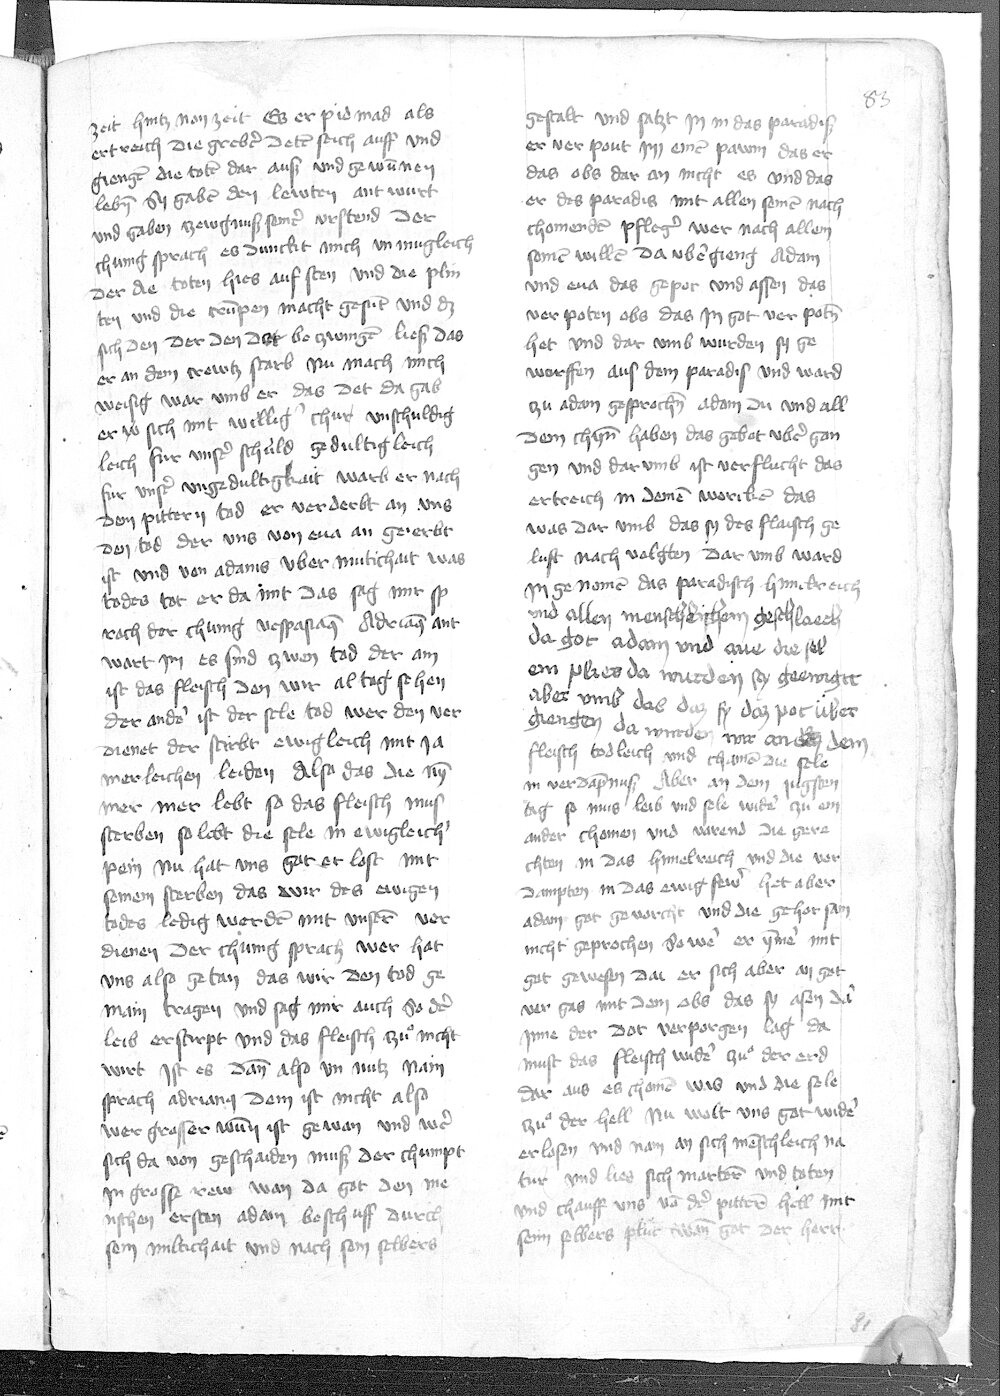 83
zeit hintz non zeit Es er pid mad als
ertreich die grebē deten seich auff und
giengē die totē dar auß und gewūnen
lebn̄ Sy gabē den lewten ant wurt
und gaben tzewgnuß seinē urstend Der
chunig sprach es dunckt mich un mugleich
der die toten hies auf sten und die plin
ten und die crūpen macht gesūt und dz
sich den der den Dot be tzwingē ließ das
er an dem crewtz starb Nu mach mich
weisig war umb er das det da gab
er sich mit willig chur unschuldig
leich fur unser schuld gedultig leich
fur unser ungedultigkait warb er nach
dem pittern tod er verderbt an uns
den tod der uns von eua an geerbt
ist und von adams uber mutichait was
todes tot er da mit Das sag mir sp
rach der chunig vespasian̄ Adrian̄ ant
wart im es sind tzwen tod der ain
ist das fleisch den wir al tag sehen
der andē ist der sele tod wer den ver
dienet der stirbt ewigleich mit ja
merleichen leiden Also das die nȳ
mer mer lebt so das fleisch mus
sterben so lebt die sele in ewigleich
pein Nu hat uns got er lost mit
seinem sterben das wir des ewigen
todes ledig werdē mit unserē ver
dienen Der chunig sprach wer hat
uns also getan das wir den tod ge
main tragen und sag mir auch So dē
leib erstirpt und das fleisch zuͦ nicht
wirt Ist es dan̄ also un nutz Nain
sprach adriany dem ist nicht also
wer grosser wun̄ ist gewan und wē
sich da von geschaiden muß der chumpt
in grosse rew wan da got den me
nschen ersten adam beschuff durch
sein miltichait und nach sein selbers
gestalt und satzt in in das paradiß
er ver pout im einē pawm das er
das obs dar an nicht es und das
er des paradis mit allen seinē nach
chomendē pfleg wer nach allem
seinē willē Da ubē gieng Adam
und eua das gepot und assen das
ver poten obs das in got ver potn̄
het und dar umb wurden sy ge
worffen aus dem paradis und ward
tzu adam gesprochn̄ Adam du und all
dein chind haben das gebot ubē gan
gen und dar umb ist verflucht das
ertreich in deinē werckē das
was dar umb das sy des flaisch ge
lust nach volgten Dar umb ward
in ge nomē das paradisch himelreich
und allen menschlichem geschlaech
da got adam und aue die sel
ein plies da wurden sy geewigt
aber umb das daz sy daz pot uber
giengen da wurden wir an dem
fleisch todleich und chamē die sele
in verdapnuß Aber an dem jugsten
tag so mus leib und sele widē zu ein
ander chomen und varend die gere
chten in das himelreich und die ver
dampten in das ewig fewr het aber
adam got gevorcht und die gehorsam
nicht geprochen So wē er ȳmē mit
got gewesen Da er sich aber an got
ver gas mit dem obs das sy asen da
inne der Dot verporgen lag da
must das fleisch widē zuͦ der erd
dar aus es chomē was und die sele
zuͦ der hell Nu wolt uns got widē
erlosen und nam an sich mēschleich na
tur und lies sich martē und toten
und chauff uns vō dē pittrē hell mit
seim selbers plut wan̄ got der herr
81